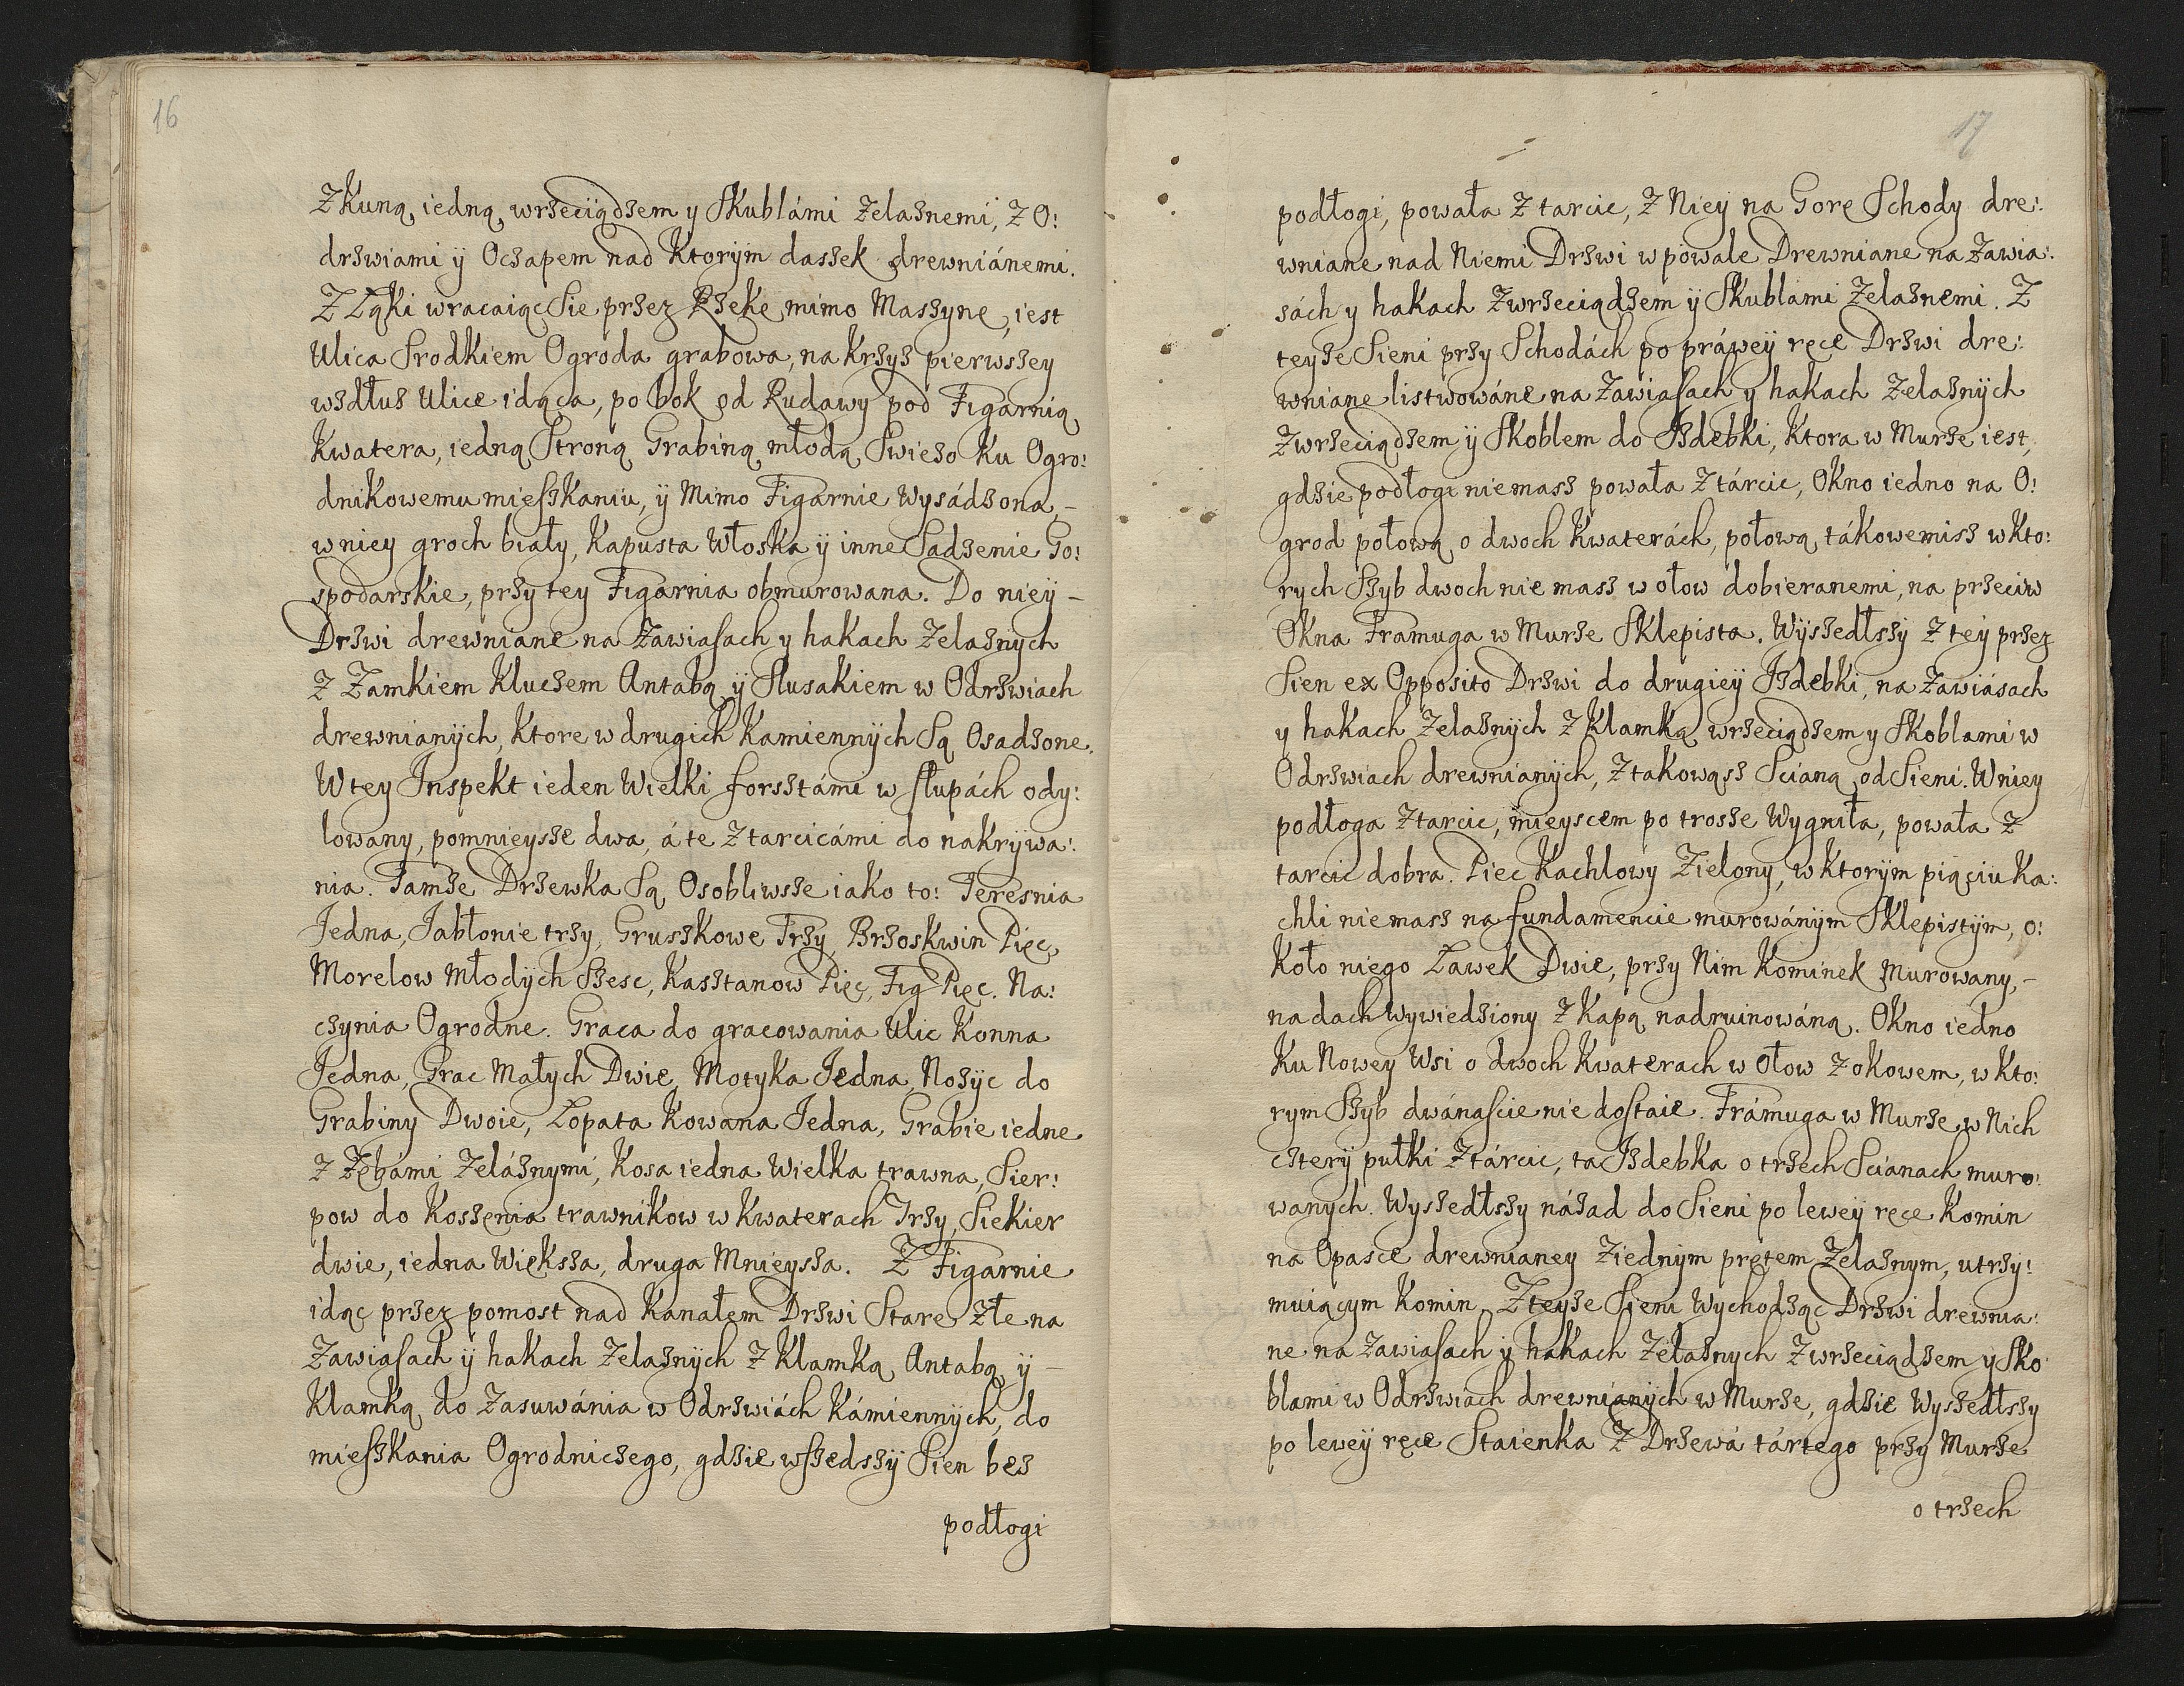 16
Z Kuną iedną wrzeciądzem y Skublámi Zelaznemi, Z O:
drzwiami ÿ Oczapem nad Ktorÿm daszek drewniánemi.
Z Łąki wracaiąc Sie przez Rzekę mimo Maszynę, iest
Ulica Srodkiem Ogroda grabowa, na Krzyz pierwszey
wzdłuz Ulice idąca, po bok od Rudawy pod Figarnią
Kwatera, iedną Stroną Grabiną młodą Swiezo Ku Ogro:
dnikowemu mieszkaniu, ÿ Mimo Figarnie Wysádzona, –
w niey groch biały, Kapusta Włoska ÿ inne Sadzenie Go:
spodarskie, przy tey Figarnia obmurowana. Do nieÿ –
Drzwi drewniane na Zawiasach y hakach Zelaznych
Z Zamkiem Kluczem Antabą ÿ Slusakiem w Odrzwiach
drewnianÿch, Ktore w drugich Kamiennÿch Są Osadzone.
W tey Inspekt ieden Wielki forsztámi w slupách ody:
lowany, pomnieysze dwa, á te Z tarcicámi do nakrÿwa:
nia. Tamze Drzewka Są Osobliwsze iako to: Teresnia
Jedna, Jabłonie trzy, Gruszkowe Trzy, Brzoskwin Pięc,
Morelow Młodÿch Szesc, Kasztanow Pięc, Fig Pięc. Na:
czynia Ogrodne. Graca do gracowania Ulic Konna
Jedna, Grac Małych Dwie, Motyka Jedna, Nozÿc do
Grabiny Dwoie, Łopata Kowana Jedna, Grabie iedne
Z Zębámi Zeláznymi, Kosa iedna Wielka trawna, Sier:
pow do Koszenia trawnikow w Kwaterach Trzy, Siekier
dwie, iedna Większa, druga Mnieysza. Z Figarnie
idąc przez pomost nad Kanałem Drzwi Stare Złe na
Zawiasach ÿ hakach Zelaznÿch Z Klamką Antabą ÿ –
Klamką do Zasuwánia w Odrzwiách Kámiennÿch, do
mieszkania Ogrodniczego, gdzie wszedszÿ Sien bez
podłogi
17
podłogi, powała Z tarcic, Z Nieÿ na Gorę Schody dre:
wniane nad Niemi Drzwi w powale Drewniane na Zawia:
sách y hakach Z wrzeciądzem ÿ Skublami Zelaznemi. Z
teyze Sieni przy Schodách po práweÿ ręce Drzwi dre:
wniane listwowáne na Zawiasach y hakach Zelaznÿch
Z wrzeciądzem ÿ Skoblem do Izdebki, Ktora w Murze iest,
gdzie podłogi niemasz powała Z tárcic, Okno iedno na O:
grod połową o dwoch Kwaterách, połową tákowemisz w Kto:
rych Szyb dwoch nie masz w ołow dobieranemi, na przeciw
Okna Framuga w Murze Sklepista. Wÿszedłszÿ Z teÿ przez
Sien ex Opposito Drzwi do drugieÿ Izdebki, na Zawiásach
y hakach Zelaznÿch Z Klamką wrzeciądzem y Skoblami w
Odrzwiach drewnianÿch, Z takowąsz Scianą od Sieni. W niey
podłoga Z tarcic, mieyscem po trosze Wygniła, powała Z
tarcic dobra. Piec Kachlowy Zielony, w Ktorÿm piąciu Ka:
chli niemasz na fundamencie murowánÿm Sklepistÿm, o:
Koło niego Ławek Dwie, przy Nim Kominek Murowany, –
na dach wywiedziony Z Kapą nadruinowáną. Okno iedno
Ku Nowey Wsi o dwoch Kwaterach w Ołow Z okowem, w Kto:
rym Szyb dwánascie nie dostaie. Frámuga w Murze w Nich
czterÿ pułki Z tárcic, ta Izdebka o trzech Scianach muro:
wanych. Wyszedłszy názad do Sieni po leweÿ ręce Komin
na Opasce drewnianey Z iednÿm prętem Zelaznym, utrzy:
muiącym Komin. Z teyze Sieni Wychodząc Drzwi drewnia:
ne na Zawiasach ÿ hakach Zelaznych Z wrzeciądzem y Sko
blami w Odrzwiach drewnianÿch w Murze, gdzie Wyszedłszy
po leweÿ ręce Staienka Z Drzewá tártego przy Murze
o trzech